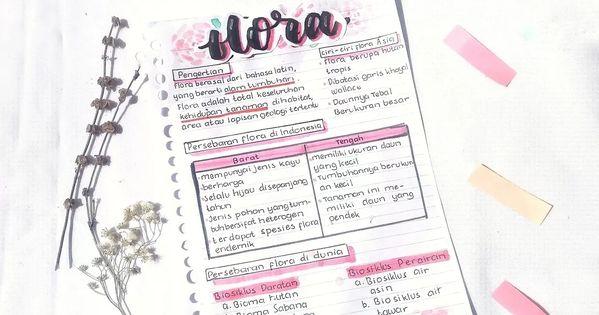 flora
Pengertian
Flora berasal dari bahasa latin,
yang berarti alam tumbuhan.
Flora adalah total keseluruhan
kehidupan tanaman di habitat,
area atau lapisan geologi tertentu
ciri-ciri flora Asia
Flora berupa hutan
tropis
Dibatasi garis khayal
wallace
Daunnya Tebal
Berukuran besar
Persebaran flora di Indonesia
Barat
mempunyai jenis kayu
berharga
selalu hijau disepanjang
tahun
Jenis pohon yang tum-
buh bersifat heterogen
terdapat spesies flora
endemik
Tengah
memiliki ukuran daun
yang kecil
Tumbuhannya berukur
an kecil
Tanaman ini me-
miliki daun yang
pendek
Persebaran flora di dunia
Biosiklus Daratan
a. Bioma Hutan
Bioma Sabana
Biosiklus Perairan
a. Biosiklus air
asin
b. Biosiklus air
tawar